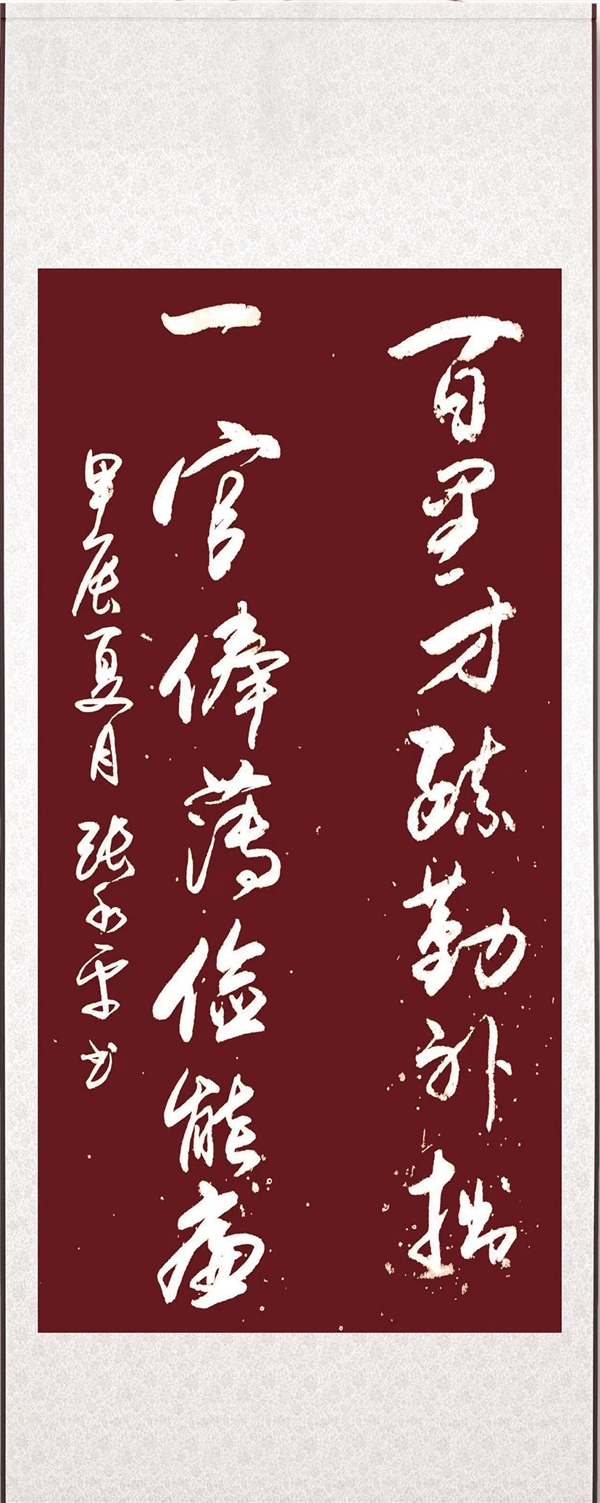 百里才疏勤补拙
一官俸薄俭能廉
甲辰夏月 张永平书